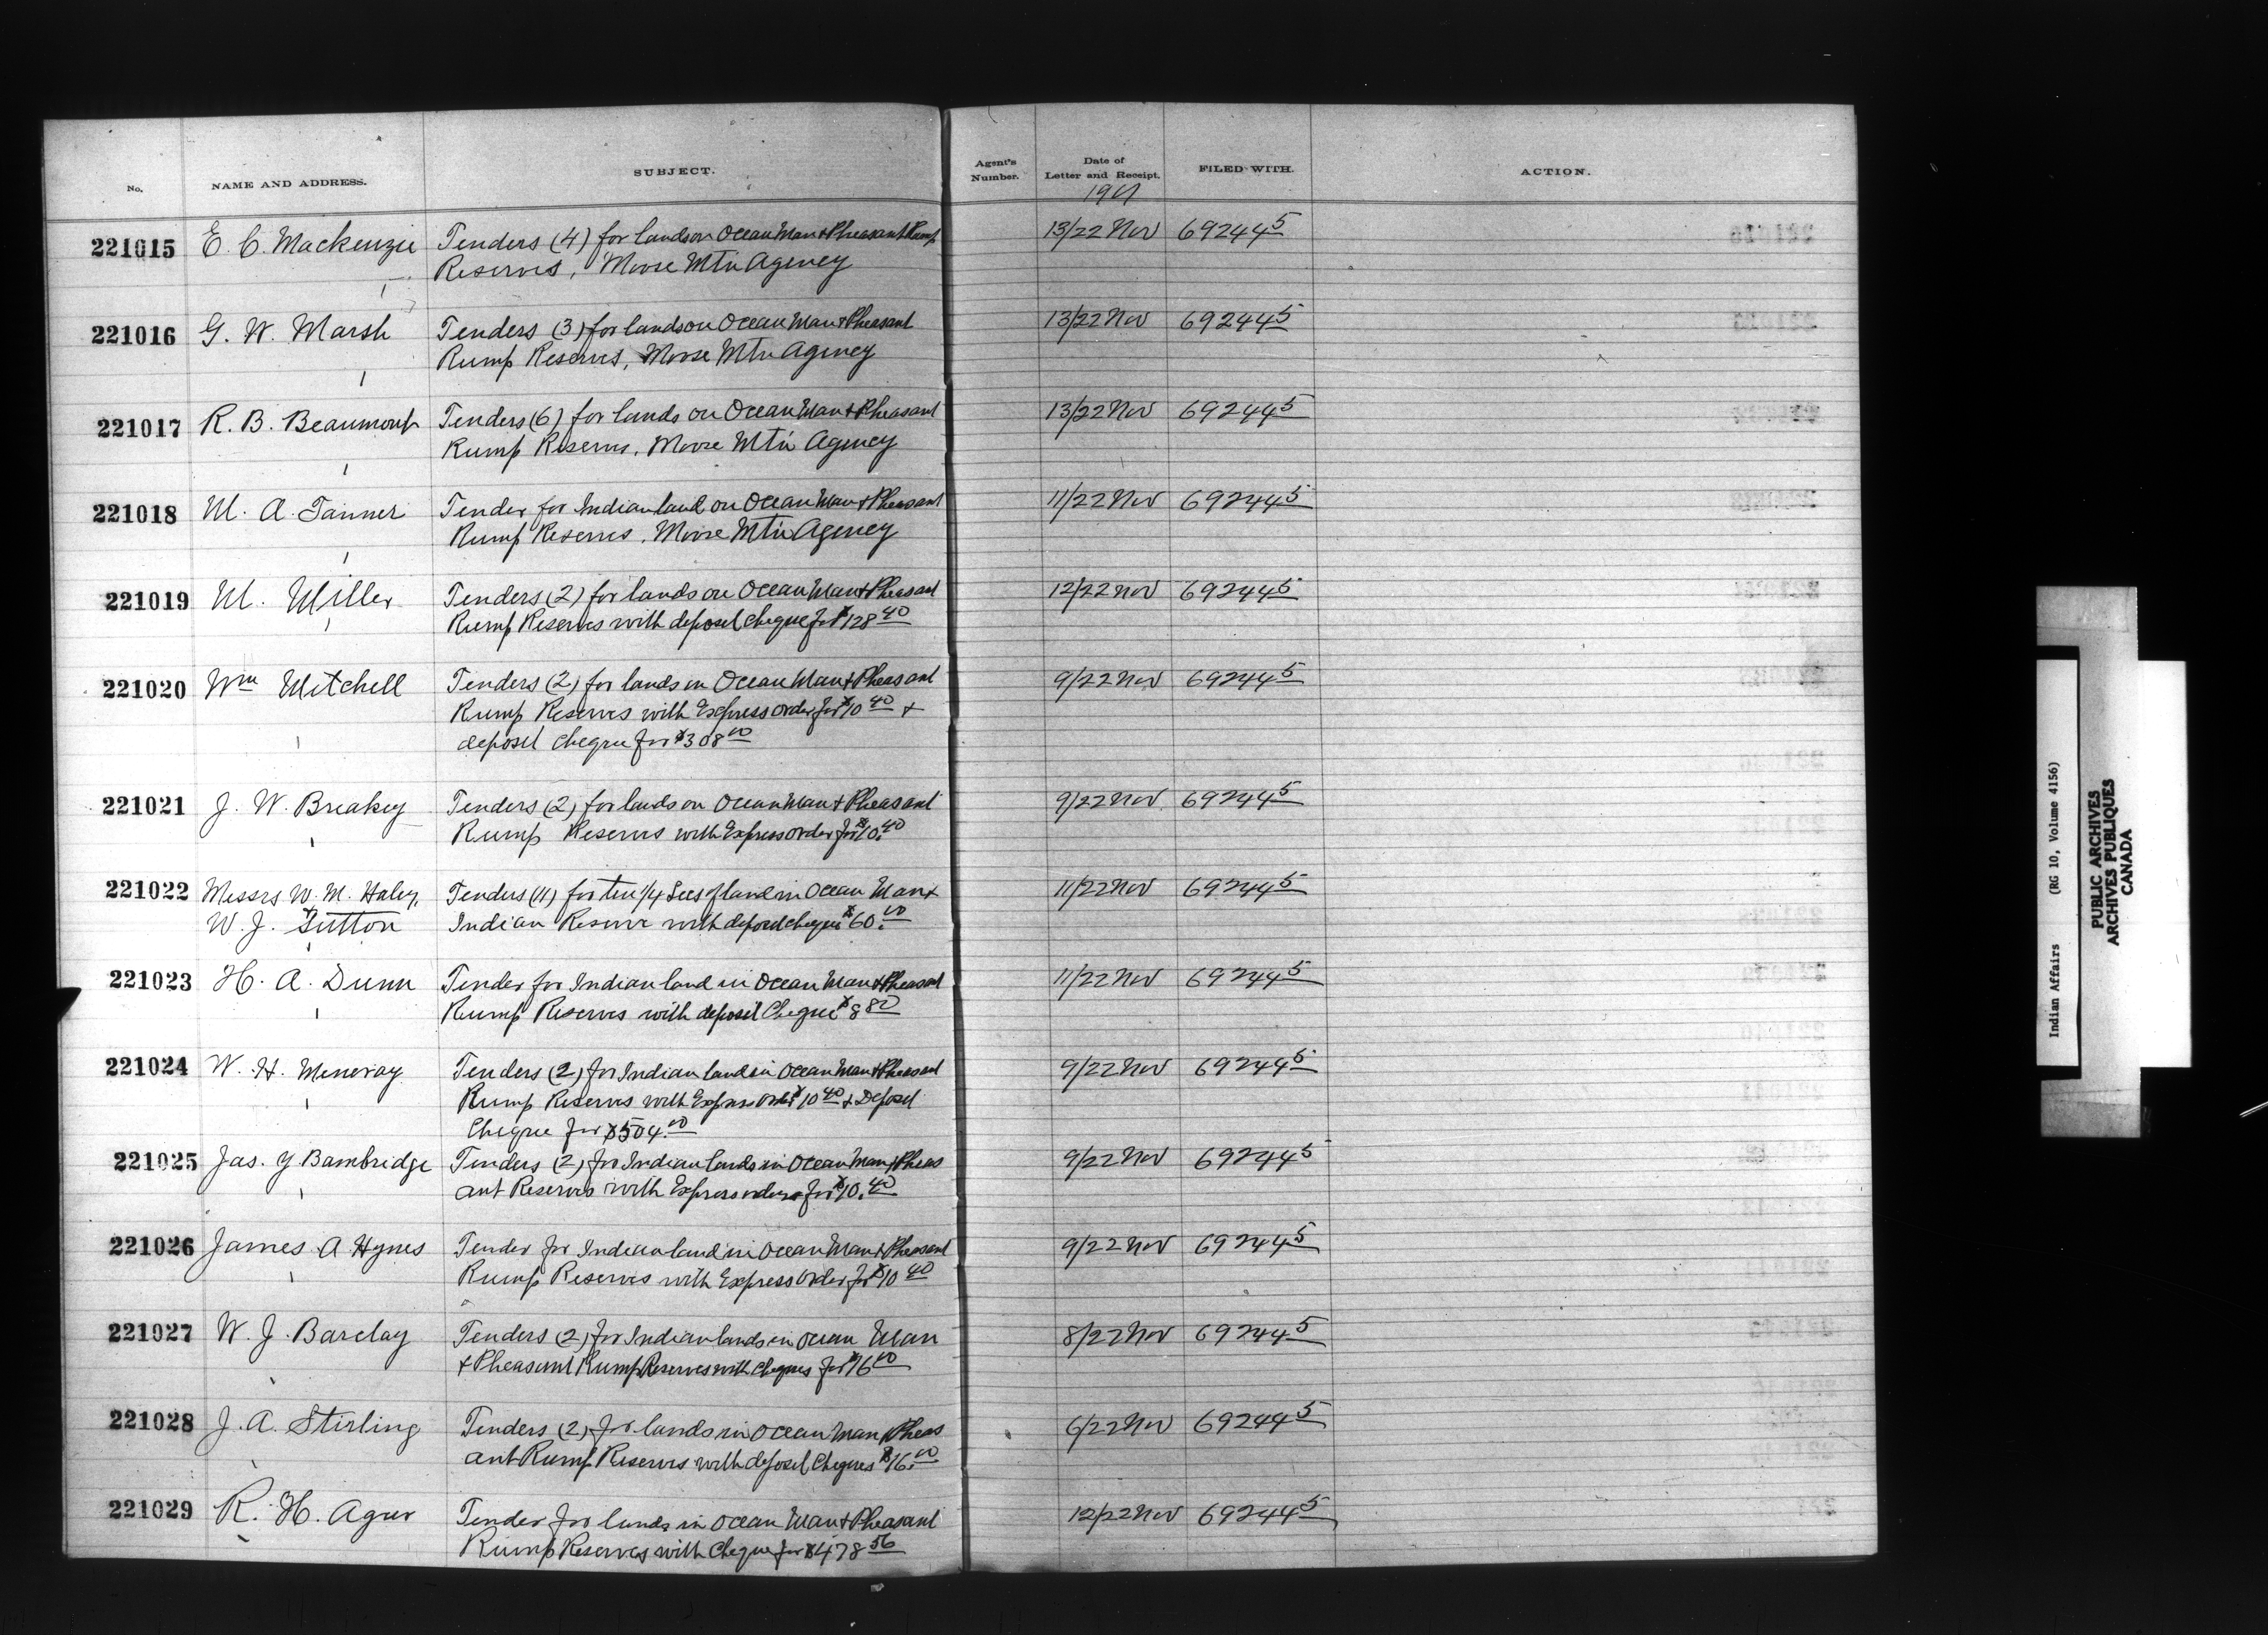 No. NAME AND ADDRESS. SUBJECT. Agent's Number. Date of Letter and Receipt. FILED WITH. ACTION.
221015 E. C. Mackenzie Tenders (4) for lands on Ocean Man & Pheasant Rump 13/22 Nov 692445
Reserves, Moose Mtn Agency
221016 G. W. Marsh Tenders (3) for lands on Ocean Man & Pheasant 13/22 Nov 692445
Rump Reserves, Moose Mtn Agency
221017 R. B. Beaumont Tenders (6) for lands on Ocean Man & Pheasant 13/22 Nov 692445
Rump Reserves, Moose Mtn Agency
221018 M. A. Tanner Tender for Indian land on Ocean Man & Pheasant 11/22 Nov 692445
Rump Reserves, Moose Mtn Agency
221019 M. Miller Tenders (2) for lands on Ocean Man & Pheasant 12/22 Nov 692445
Rump Reserves with deposit cheque for $128 40
221020 Wm Mitchell Tenders (2) for lands in Ocean Man & Pheasant 9/22 Nov 692445
Rump Reserves with Express order for $10 40 &
deposit cheque for $308 00
221021 J. W. Breakey Tenders (2) for lands on Ocean Man & Pheasant 9/22 Nov 692445
Rump Reserves with Express order for $10.40
221022 Messrs W. M. Haley, Tenders (11) for ten 1/4 Secs of land in Ocean Man & 11/22 Nov 692445
W. J. Sutton Indian Reserve with deposit cheque $60.00
221023 H. A. Dunn Tender for Indian land in Ocean Man & Pheasant 11/22 Nov 692445
Rump Reserves with deposit Cheque $8 80
221024 W. H. Meneray Tenders (2) for Indian land in Ocean Man & Pheasant 9/22 Nov 692445
Rump Reserves with Express order $10 40 & Deposit
Cheque for $504.00
221025 Jas. Y Bambridge Tenders (2) for Indian lands in Ocean Man & Pheas 9/22 Nov 692445
ant Reserves with Express orders for $10.40
221026 James A Hynes Tender for Indian land in Ocean Man & Pheasant 9/22 Nov 692445
Rump Reserves with Express order for $10 40
221027 W. J. Barclay Tenders (2) for Indian lands in Ocean Man 8/22 Nov 692445
& Pheasant Rump Reserves with cheques for $16 00
221028 J. A. Stirling Tenders (2) for lands in Ocean Man & Pheas 6/22 Nov 692445
ant Rump Reserves with deposit Cheques $16.00
221029 R. H. Agur Tender for lands in Ocean Man & Pheasant 12/22 Nov 692445
Rump Reserves with Cheque for $478 56
Indian Affairs (RG 10, Volume 4156)
PUBLIC ARCHIVES
ARCHIVES PUBLIQUES
CANADA